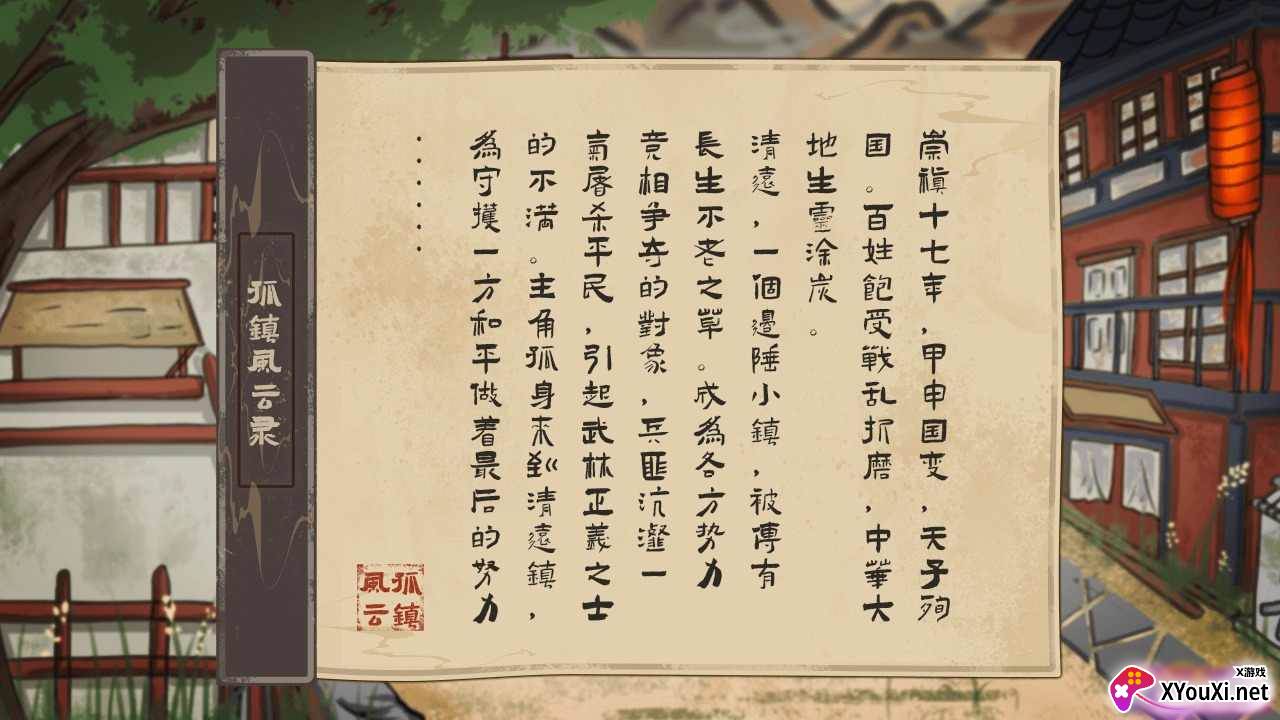 崇禎十七年，甲申国变，天子殉
国。百姓飽受戰乱折磨，中華大
地生靈涂炭。
清遠，一個邊陲小鎮，被傳有
長生不老之草。成為各方势力
竞相争夺的對象，兵匪沆瀣一
氣屠杀平民，引起武林正義之士
的不满。主角孤身来到清遠鎮，
為守擭一方和平做着最后的努力
······
孤鎮風云录
孤鎮
風云
X游戏
XYouXi.net